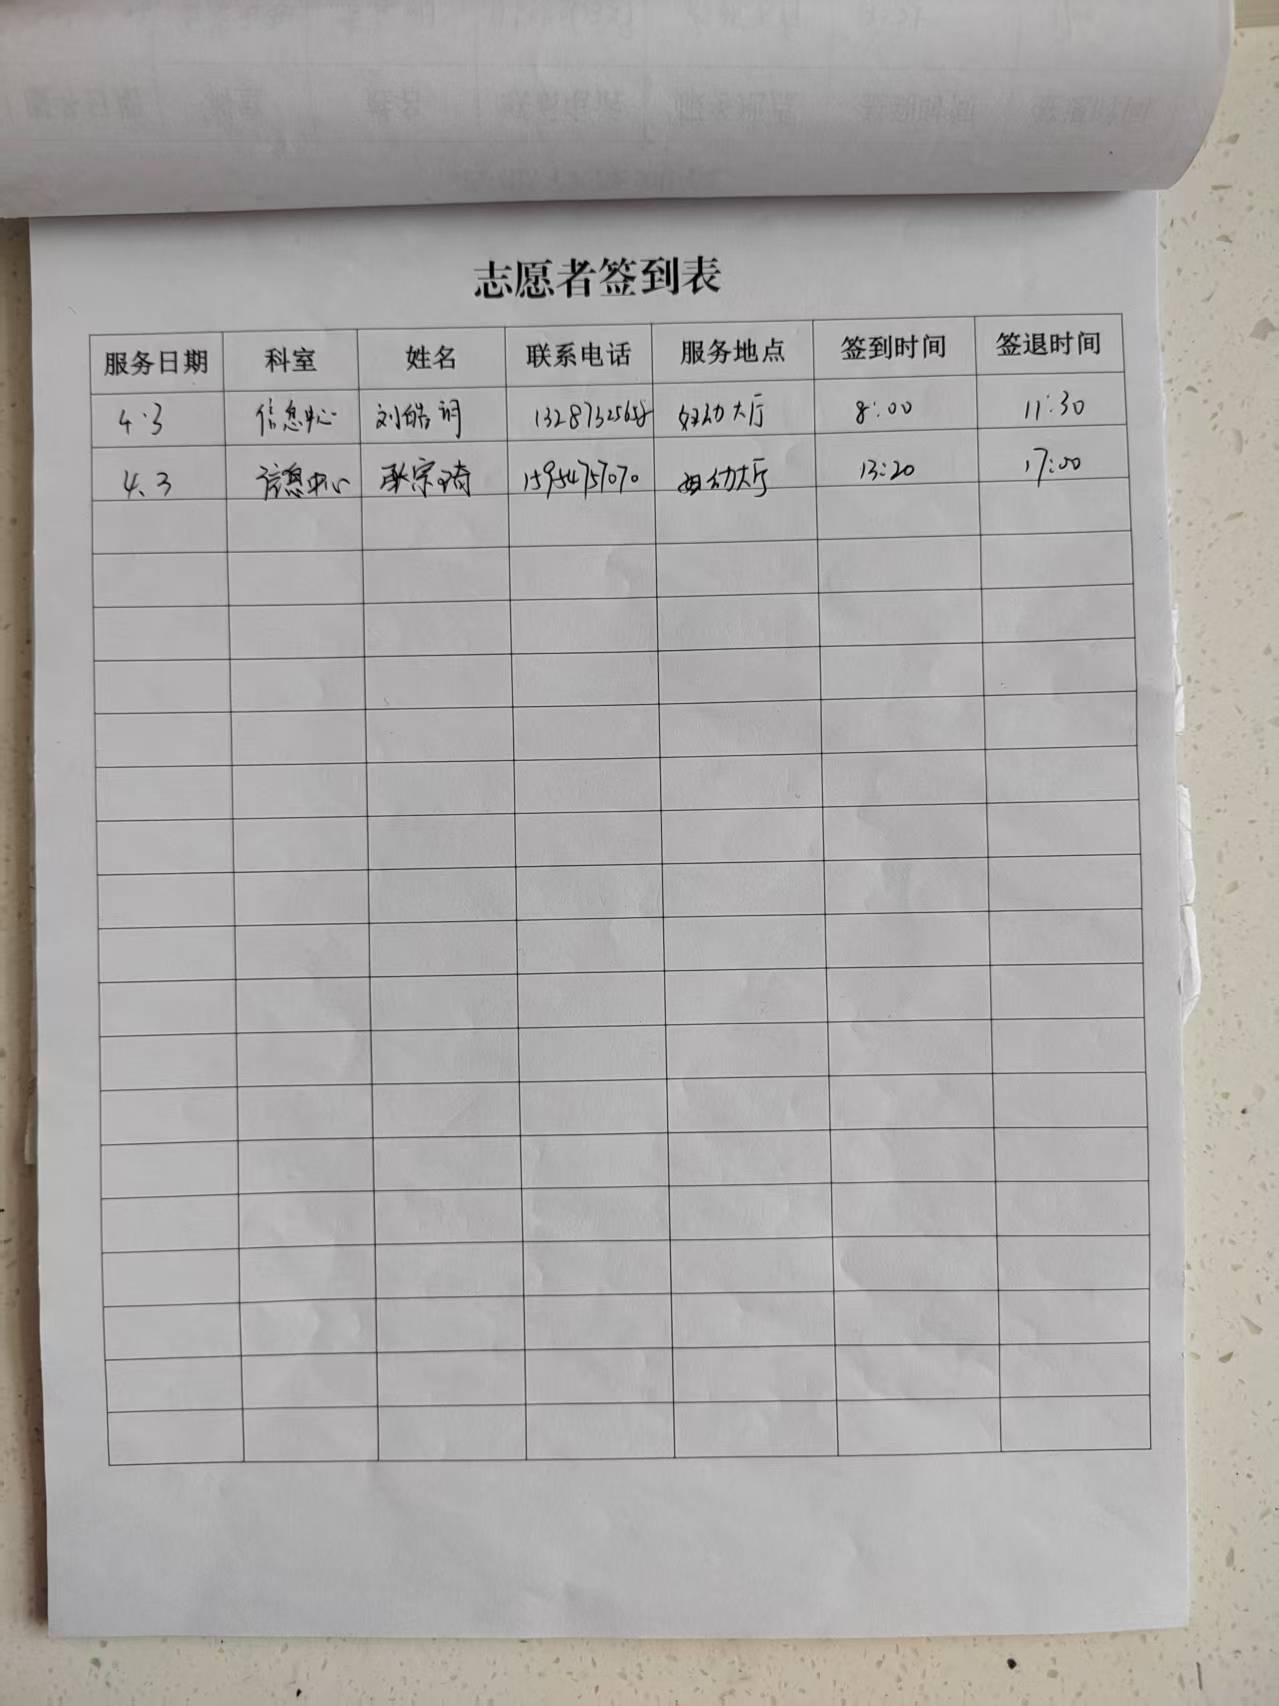 志愿者签到表
服务日期 科室 姓名 联系电话 服务地点 签到时间 签退时间
4.3 信息中心 刘皓词 妇幼大厅 8:00 11:30
4.3 信息中心 宗琦 15954757070 妇幼大厅 13:20 17:00